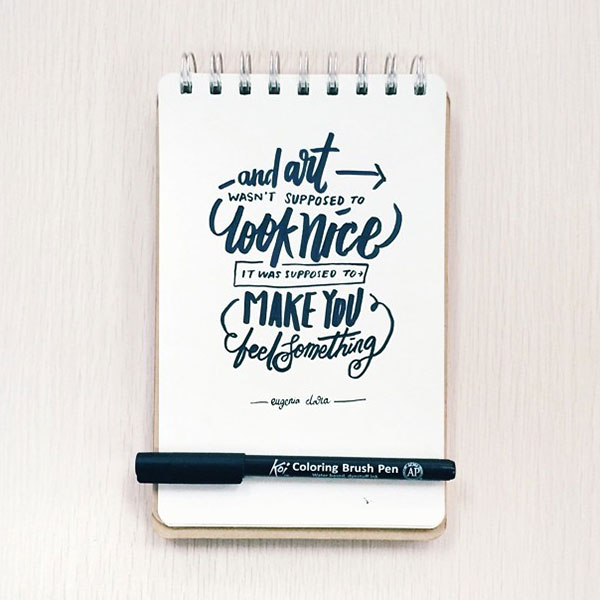 and art
WASN'T SUPPOSED TO
look nice
IT WAS SUPPOSED TO
MAKE YOU
feel Something
eugenia clara
Koi Coloring Brush Pen AP
Water based dyestuff ink